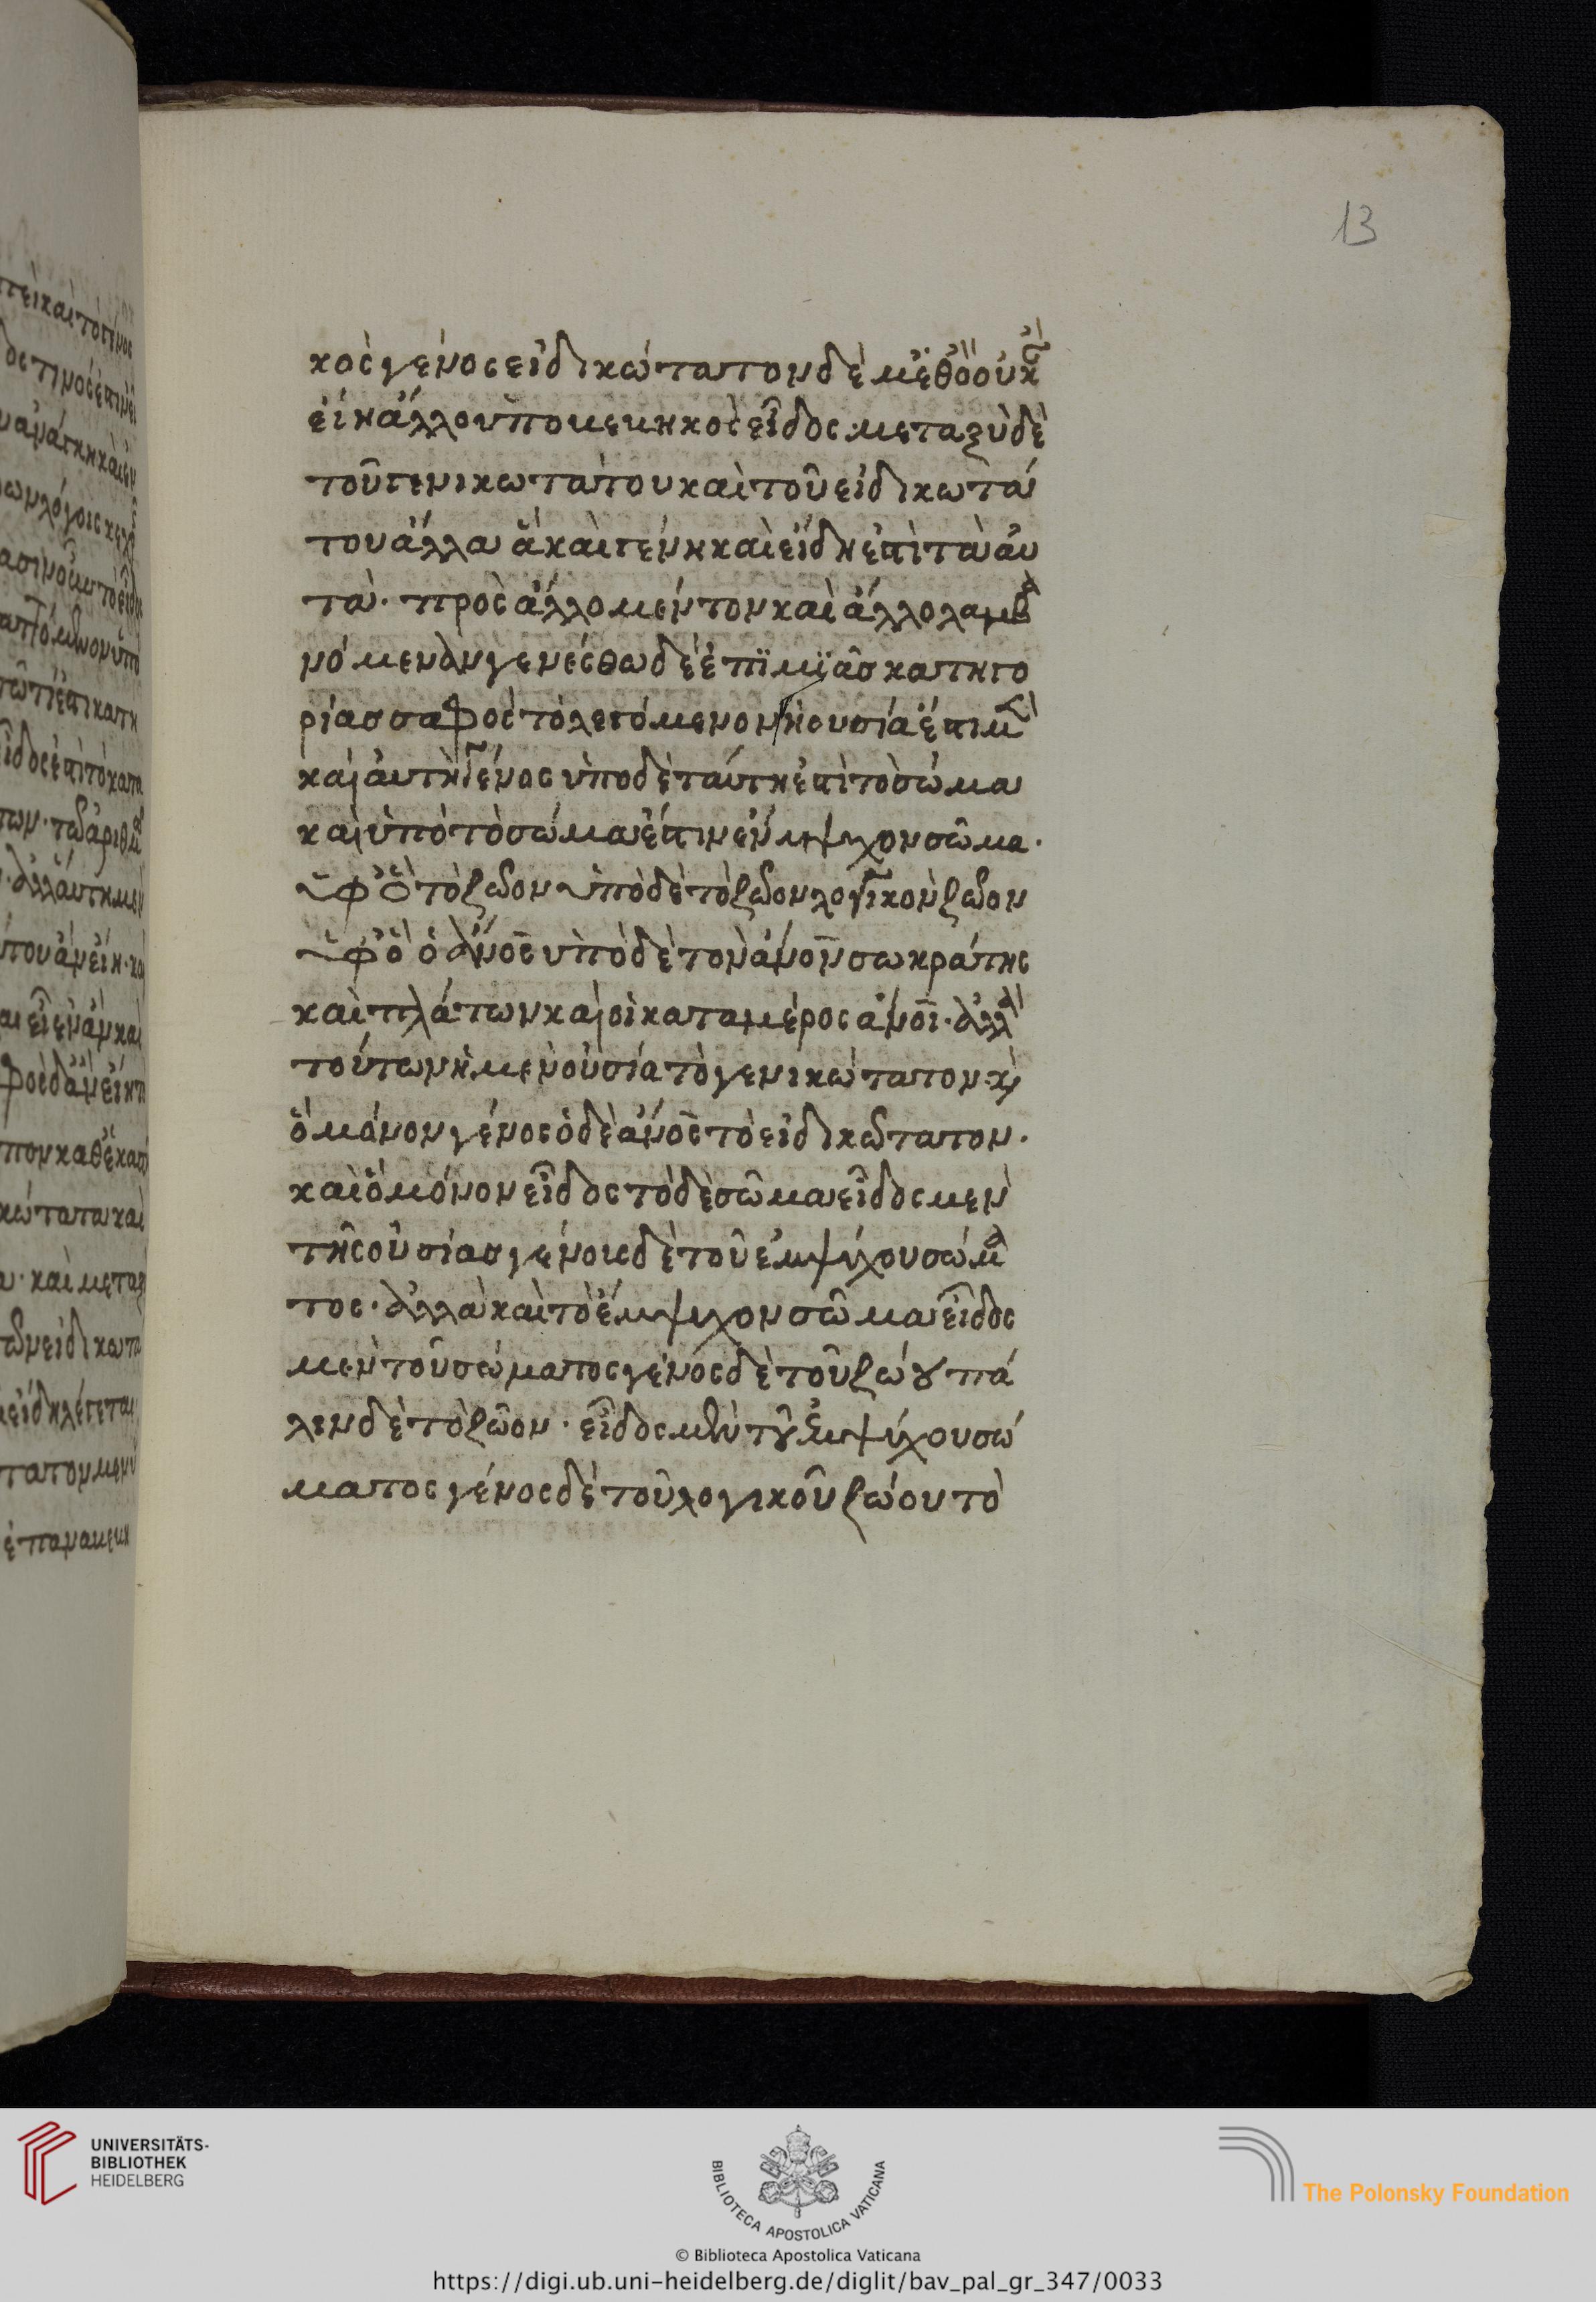 13
κὸς γένος εἰδικώτατον δὲ μεθ' ὃ οὐκ ἂν
εἴη ἄλλο ὑποβεβηκὸς εἶδος μεταξὺ δὲ
τοῦ γενικωτάτου καὶ τοῦ εἰδικωτά
του ἄλλα ἃ καὶ γένη καὶ εἴδη ἐστὶ τὰ αυ
τά· πρὸς ἄλλο μέντον καὶ ἄλλο λαμβα
νόμενα γενέσθω δὲ ἐπὶ μιᾶς κατηγο
ρίας σαφὸς τὸ λεγόμενον ἡ ουσία ἐστι μὲν
καὶ αυτὴ γένος ὑπο δὲ ταύτη ἐστὶ τὸ σώμα
καὶ ὑπὸ τὸ σώμα ἐστιν ἔμψυχον σῶμα·
ὑφ' ὃ τὸ ζῶον ὑπὸ δὲ τὸ ζῶον λογικὸν ζῶον
ὑφ' ὃ ὁ ἄνος ὑπὸ δὲ τὸν ἄνον σωκράτης
καὶ πλάτων καὶ οἱ κατα μέρος ἄνοι· ἀλλὰ
τούτων ἡ μὲν οὐσία τὸ γενικώτατον· καὶ
ὃ μόνον γένος ὁ δὲ ἄνος τὸ εἰδικώτατον·
καὶ ὃ μόνον εἶδος τὸ δὲ σῶμα εἶδος μὲν
τῆς οὐσίας γένος δὲ τοῦ ἐμψύχου σώμα
τος· ἀλλὰ καὶ τὸ ἔμψυχον σῶμα εἶδος
μὲν τοῦ σώματος γένος δὲ τοῦ ζώου πά
λιν δὲ τὸ ζῶον· εἶδος μὲν τοῦ ἐμψύχου σώ
ματος γένος δὲ τοῦ λογικοῦ ζώου τὸ
UNIVERSITÄTS-
BIBLIOTHEK
HEIDELBERG
BIBLIOTECA APOSTOLICA VATICANA
The Polonsky Foundation
© Biblioteca Apostolica Vaticana
https://digi.ub.uni-heidelberg.de/diglit/bav_pal_gr_347/0033